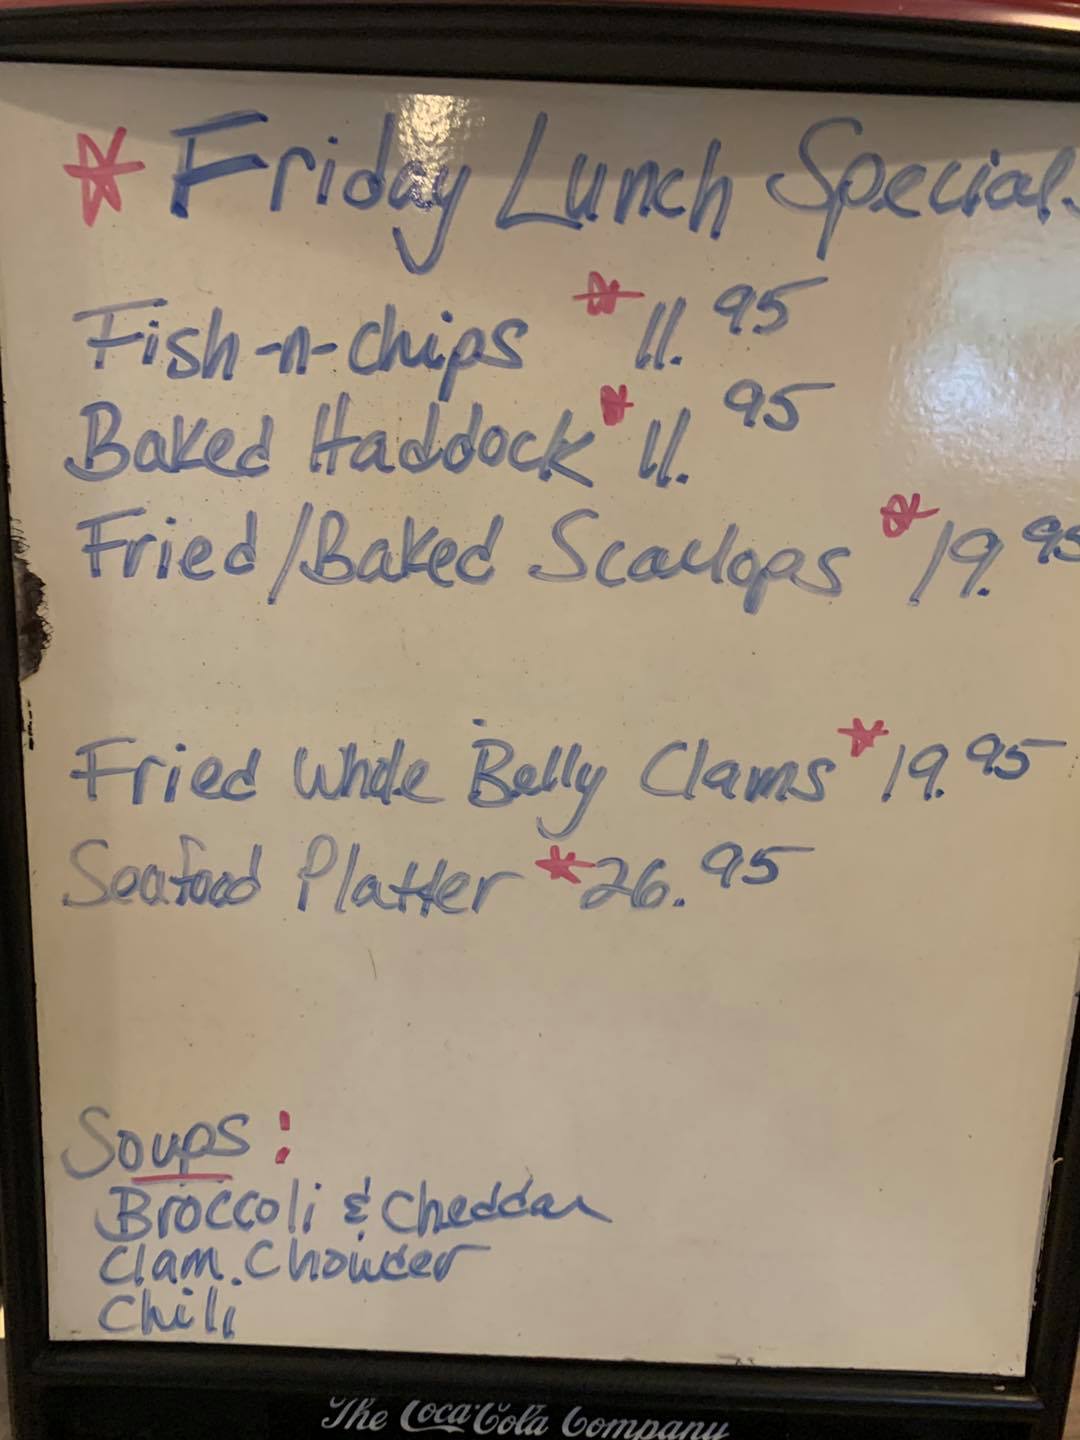 * Friday Lunch Specials
Fish-n-chips * 11.95
Baked Haddock * 11.95
Fried/Baked Scallops * 19.95
Fried Whole Belly Clams * 19.95
Seafood Platter * 26.95
Soups:
Broccoli & Cheddar
Clam Chowder
Chili
The Coca-Cola Company